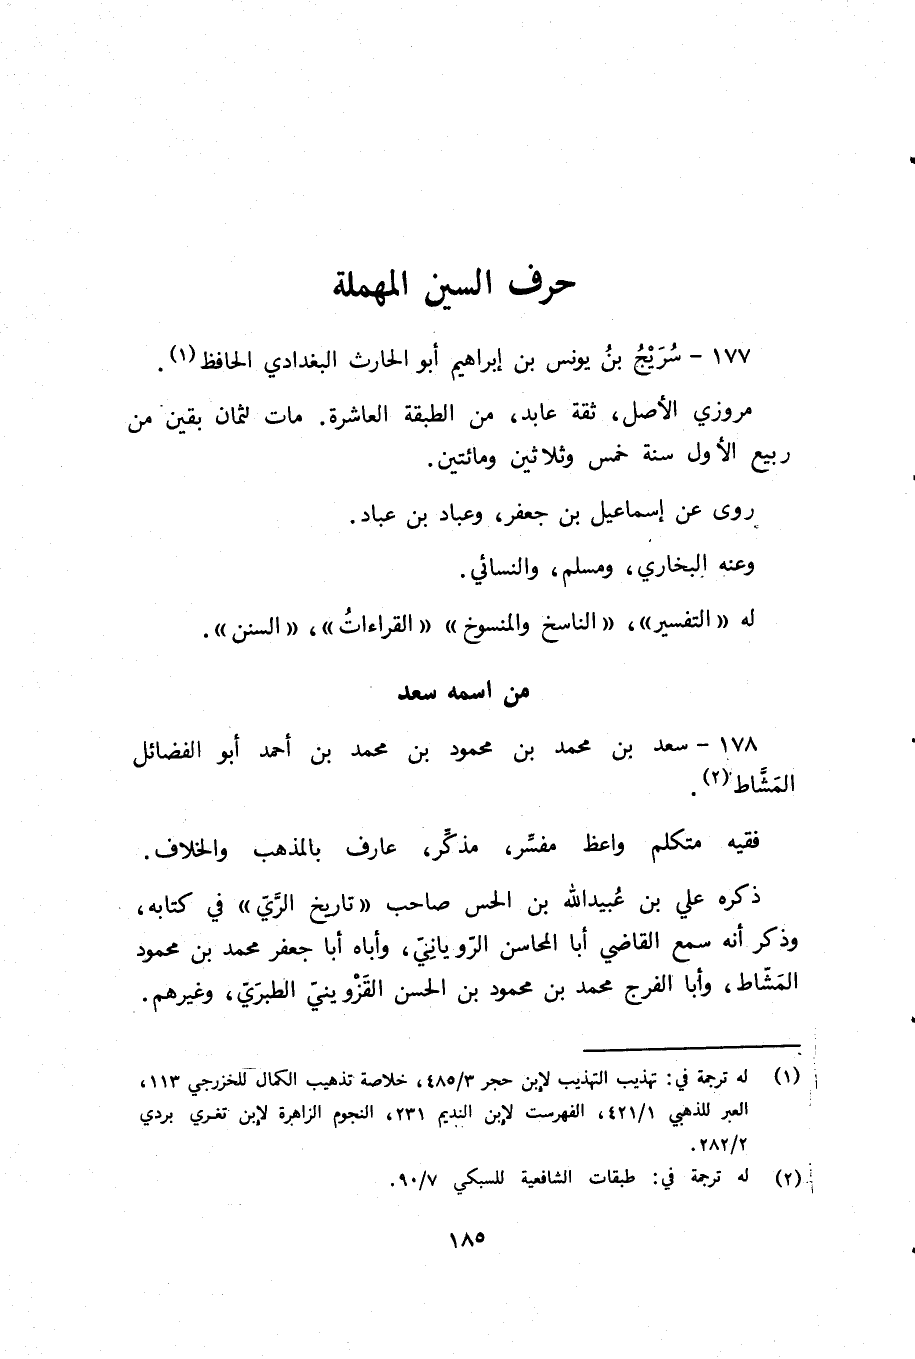 حرف السين المهملة
١٧٧ - سُرَيْجُ بنُ يونس بن إبراهيم أبو الحارث البغدادي الحافظ(١).
مروزي الأصل، ثقة عابد، من الطبقة العاشرة. مات لثمان بقين من
ربيع الأول سنة خمس وثلاثين ومائتين.
روى عن إسماعيل بن جعفر، وعباد بن عباد.
وعنه البخاري، ومسلم، والنسائي.
له «التفسير»، «الناسخ والمنسوخ» «القراءاتُ»، «السنن».
من اسمه سعد
١٧٨ - سعد بن محمد بن محمود بن محمد بن أحمد أبو الفضائل
المَشَّاط(٢).
فقيه متكلم واعظ مفسِّر، مذكِّر، عارف بالمذهب والخلاف.
ذكره علي بن عُبيدالله بن الحس صاحب «تاريخ الرَّيّ» في كتابه،
وذكر أنه سمع القاضي أبا المحاسن الرّويانِيّ، وأباه أبا جعفر محمد بن محمود
المَشّاط، وأبا الفرج محمد بن محمود بن الحسن القَزْوينيّ الطبرَيّ، وغيرهم.
(١) له ترجمة في: تهذيب التهذيب لإبن حجر ٤٨٥/٣، خلاصة تذهيب الكمال للخزرجي ١١٣،
العبر للذهبي ٤٢١/١، الفهرست لإبن النديم ٢٣١، النجوم الزاهرة لإبن تغري بردي
٢٨٢/٢.
(٢) له ترجمة في: طبقات الشافعية للسبكي ٩٠/٧.
١٨٥